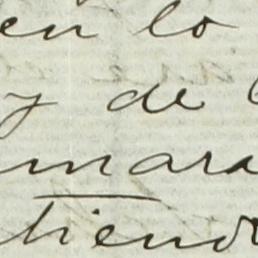 en lo
y de
mara
tiendo